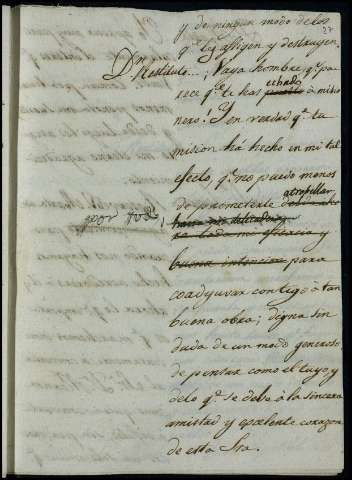 27
y de ningun modo de los
q.e les afligen y destruyen.
Dn Restituto...¡Vaya hombre q.e pa-
echado
rece q.e te has puesto à misio
nero! Y en verdad q.e tu
mision há hecho en mi tal
efecto, q.e no puedo menos
atropellar
de prometerle
por todo,
y
buena intencion para
coadyuvar contigo à tan
buena obra; digna sin
duda de un modo generoso
de pensar como el tuyo y
delo q.e se debe à la sincera
amistad y excelente corazon
de esta Sra.